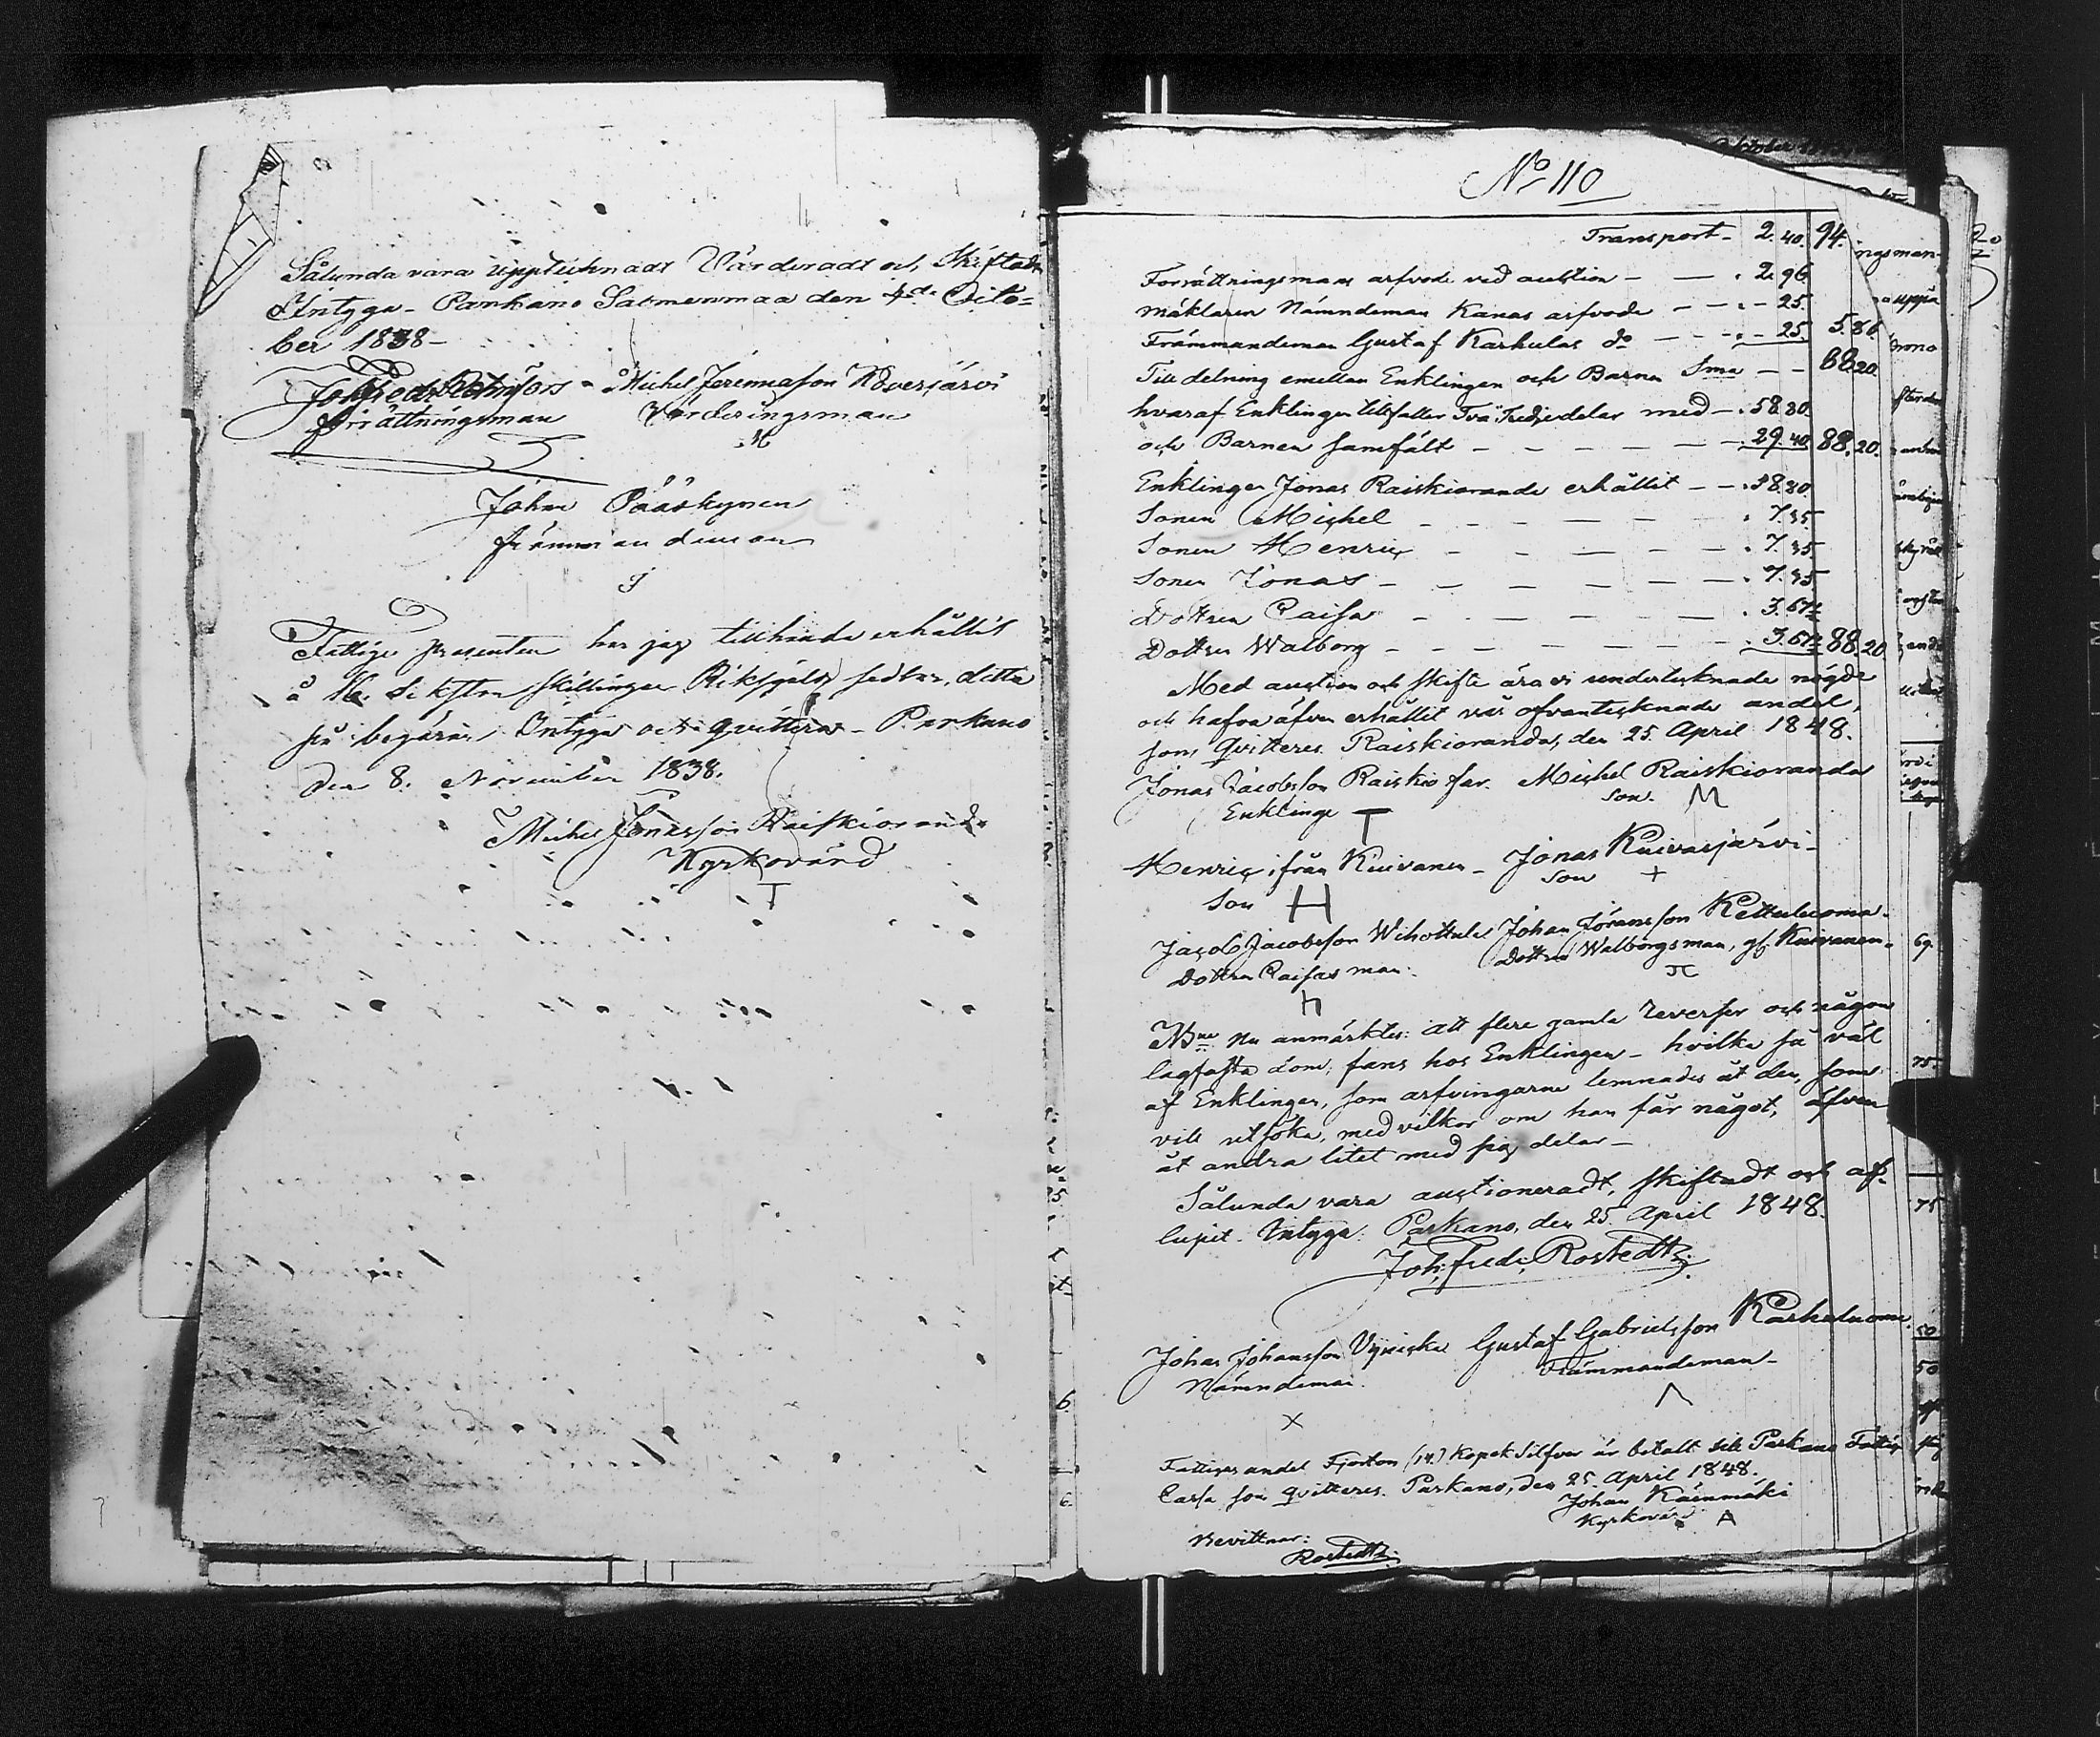 Sålunda vara upptecknadt Värderadt och Skiftadt
Intyga – Parkano Satmenmaa den 4de Octo=
ber 1838 –
Joh Fredr
förrättningsman
Michel Jöremiasson Kôversjärvi
Värderingsman
Johan Pääskynen
främmandeman
Fattige procenten har jag tillhanda erhållit
à 16. Sexton skillingar Riksgälds sedlar, detta
på begäran Intygas och qvitteras – Parkano
den 8. November 1838.
Michel Jonasson Raiskioranda
Kyrkovärd
No 110
Transport – 2.40. 94.
Förrättningsmans arfvode vid auction – – . 2.96
mäklaren Nämndeman Kanas arfvode – – . – 25.
Främmandeman Gustaf Karhulas do – – . – 25. 5.86.
Till delning emellan Enklingen och Barnen Sma – – 88.20.
hvaraf Enklingen tillfaller Två Tredjedelar med – . 58.80.
och Barnen samfält – – – – – – . 29.40 88.20.
Enklingen Jonas Raiskioranda erhållit – – . 58.80
Sonen Michel – – – – – – . 7.35
Sonen Henric – – – – – . 7.35.
Sonen Jonas – – – – – – . 7.35
Dottren Caisa – – – – – . 3.67½
Dottren Walborg – – – – – – . 3.67½ 88.20
Med auction och skifte ära vi undertecknade nögde
och hafva äfven erhållit vår ofvantecknade andel,
som qvitteres Raiskioranda, den 25. April 1848.
Jonas Jacobsson Raiskio far. Michel Raiskioranda
Enklinge T son. M
Henric ifrån Kuivanen – Jonas Kuivasjärvi –
Son H son +
Jacob Jacobsson Wihottula Johan Jöransson Kettuluoma
Dottren Caisas man. Dottren Walborgs man, gf. Kuivanen.
NBne Nu anmärktes: att flere gamla reverser och någon
lagfasta dom, fans hos Enklingen – hvilka så väl
af Enklingen, som arfvingarne lemnades åt den, som
vill utsöka, med vilkor om han får något, äfven
åt andra litet med sig delar –
Sålunda vara auctioneradt, skiftadt och af-
lupit. Intyga: Parkano, den 25. April 1848.
Joh: Fredr: Rostedt
Johan Johansson Gustaf Gabrielsson Karhuluoma.
Nämndeman. Främmandeman –
X
Fattiges andel Fjorton (14.) Kopek Silfver är betalt till Parkano Fattig
Cassa som qvitteres. Parkano, den 25. April 1848.
Johan Käenmäki
Kyrkovärd A
Bevittnar:
Rostedt